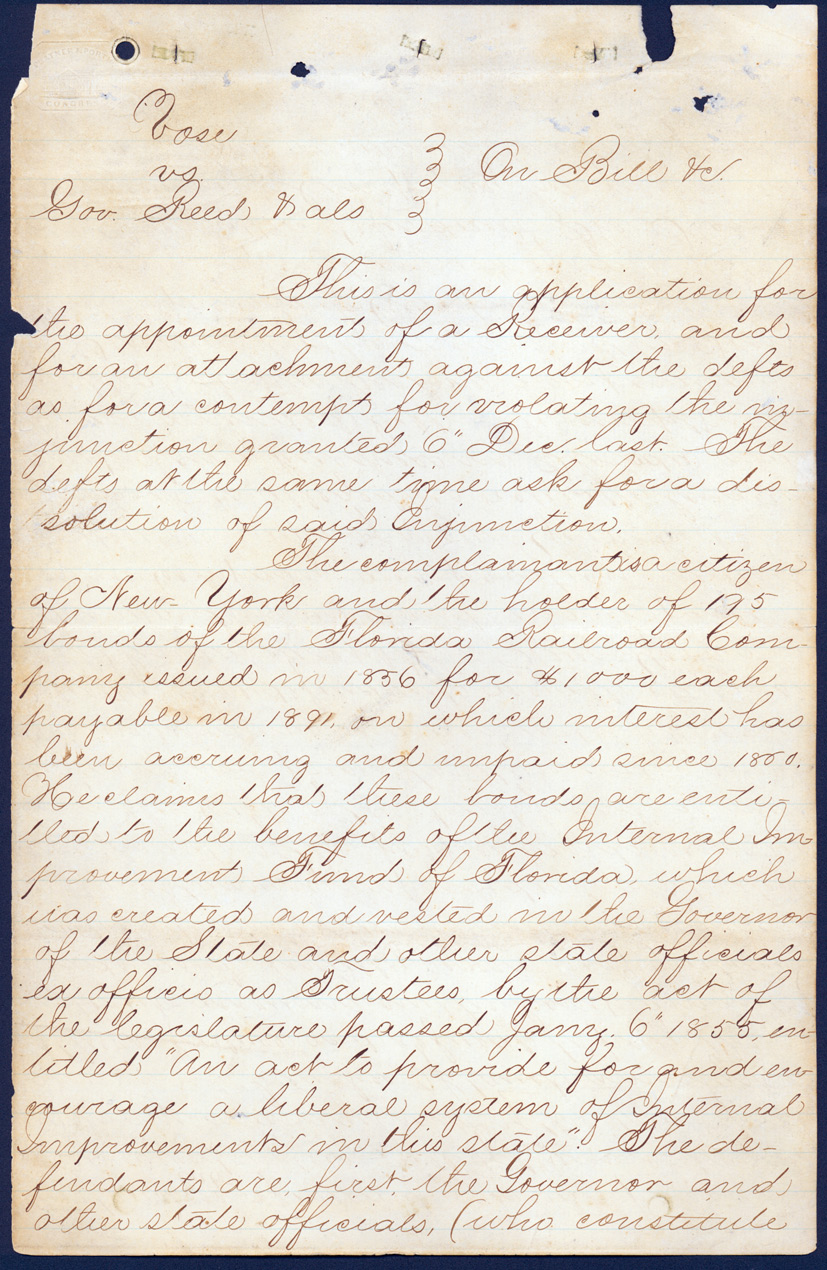 Vose
vs.
Gov. Reed & als
On Bill &c.
This is an application for
the appointment of a Receiver, and
for an attachment against the defts
as for a contempt for violating the in-
junction granted 6" Dec. last. The
defts at the same time ask for a dis-
solution of said Injunction.
The complainant is a citizen
of New-York and the holder of 195
bonds of the Florida Railroad Com-
pany issued in 1856 for $1000 each
payable in 1891, on which interest has
been accruing and unpaid since 1860.
He claims that these bonds are enti-
tled to the benefits of the Internal Im-
provement Fund of Florida, which
was created and vested in the Governor
of the State and other state officials
ex officio as Trustees, by the act of
the legislature passed Jany. 6" 1855, en-
titled "An act to provide for and en-
courage a liberal system of Internal
Improvements in this state". The de-
fendants are, first, the Governor and
other state officials, (who constitute